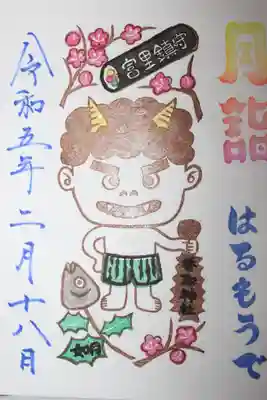 月詣
はるもうで
宮里鎮守
如月
令和五年二月十八日